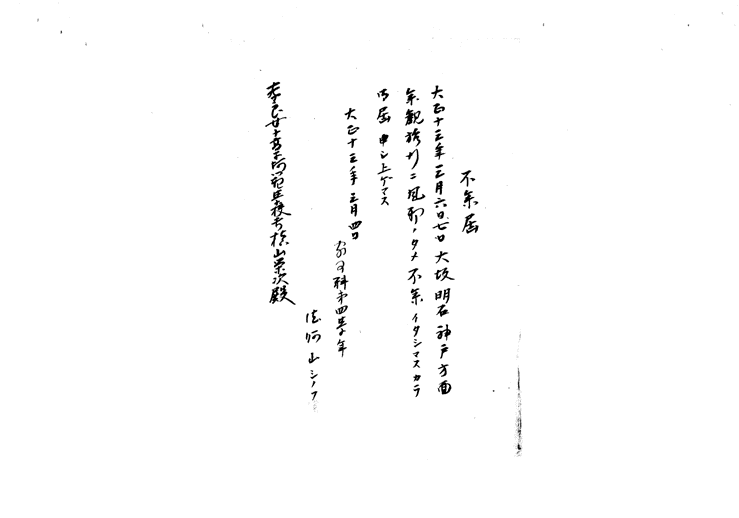 不参届
大正十三年三月六日七日大坂明石神戸方面
参観旅行ニ風邪ノタメ不参イタシマスカラ
御届申シ上ゲマス
大正十三年三月四日
家事科第四学年
山シノブ
奈良女子高等師範学校長槙山栄次殿